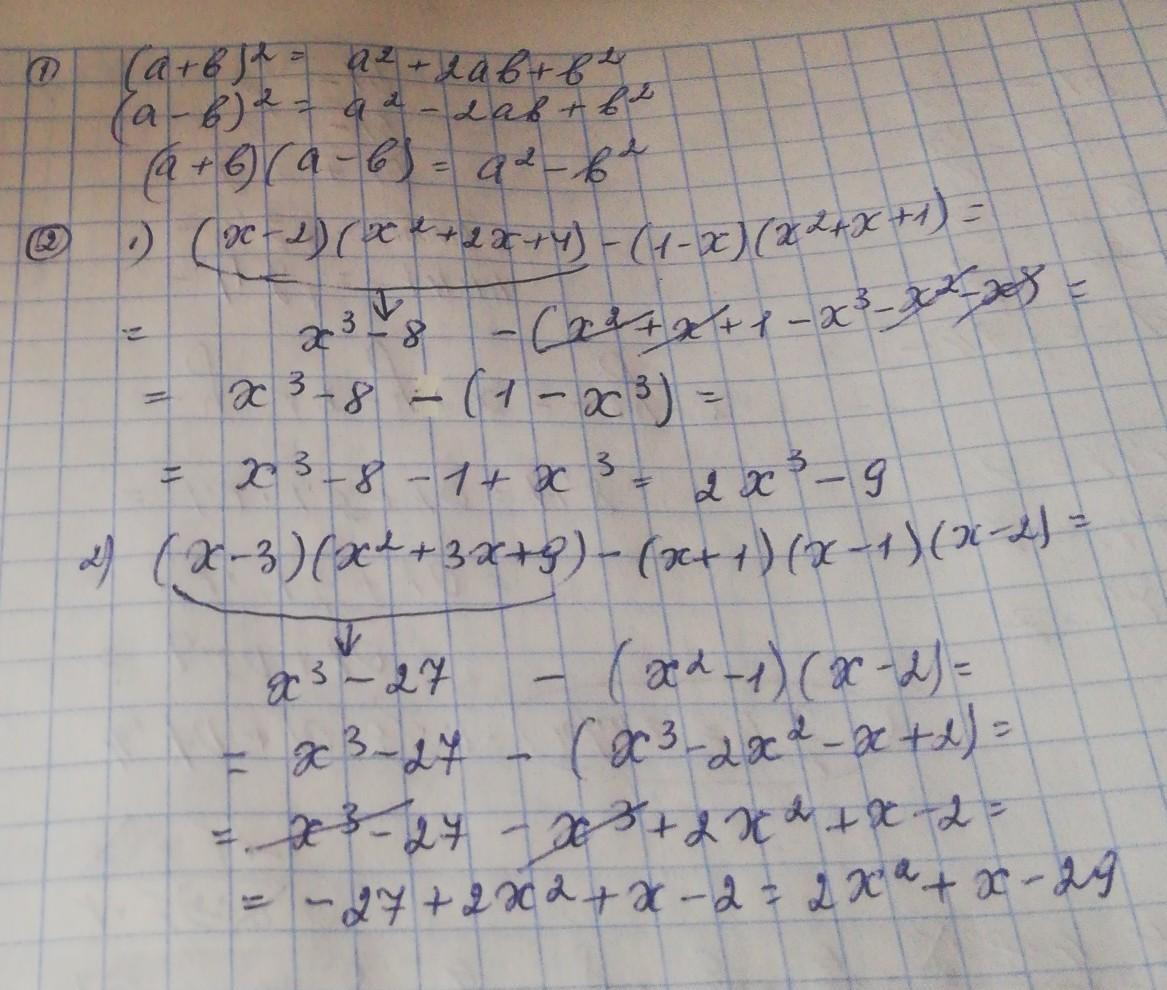 ① (a+b)² = a² + 2ab + b²
(a-b)² = a² - 2ab + b²
(a+b)(a-b) = a² - b²
② 1) (x-2)(x²+2x+4) - (1-x)(x²+x+1) =
= x³-8 - (x²+x+1-x³-x²-x) =
= x³-8 - (1-x³) =
= x³-8-1+x³ = 2x³-9
2) (x-3)(x²+3x+9) - (x+1)(x-1)(x-2) =
x³-27 - (x²-1)(x-2) =
= x³-27 - (x³-2x²-x+2) =
= x³-27-x³+2x²+x-2 =
= -27+2x²+x-2 = 2x²+x-29